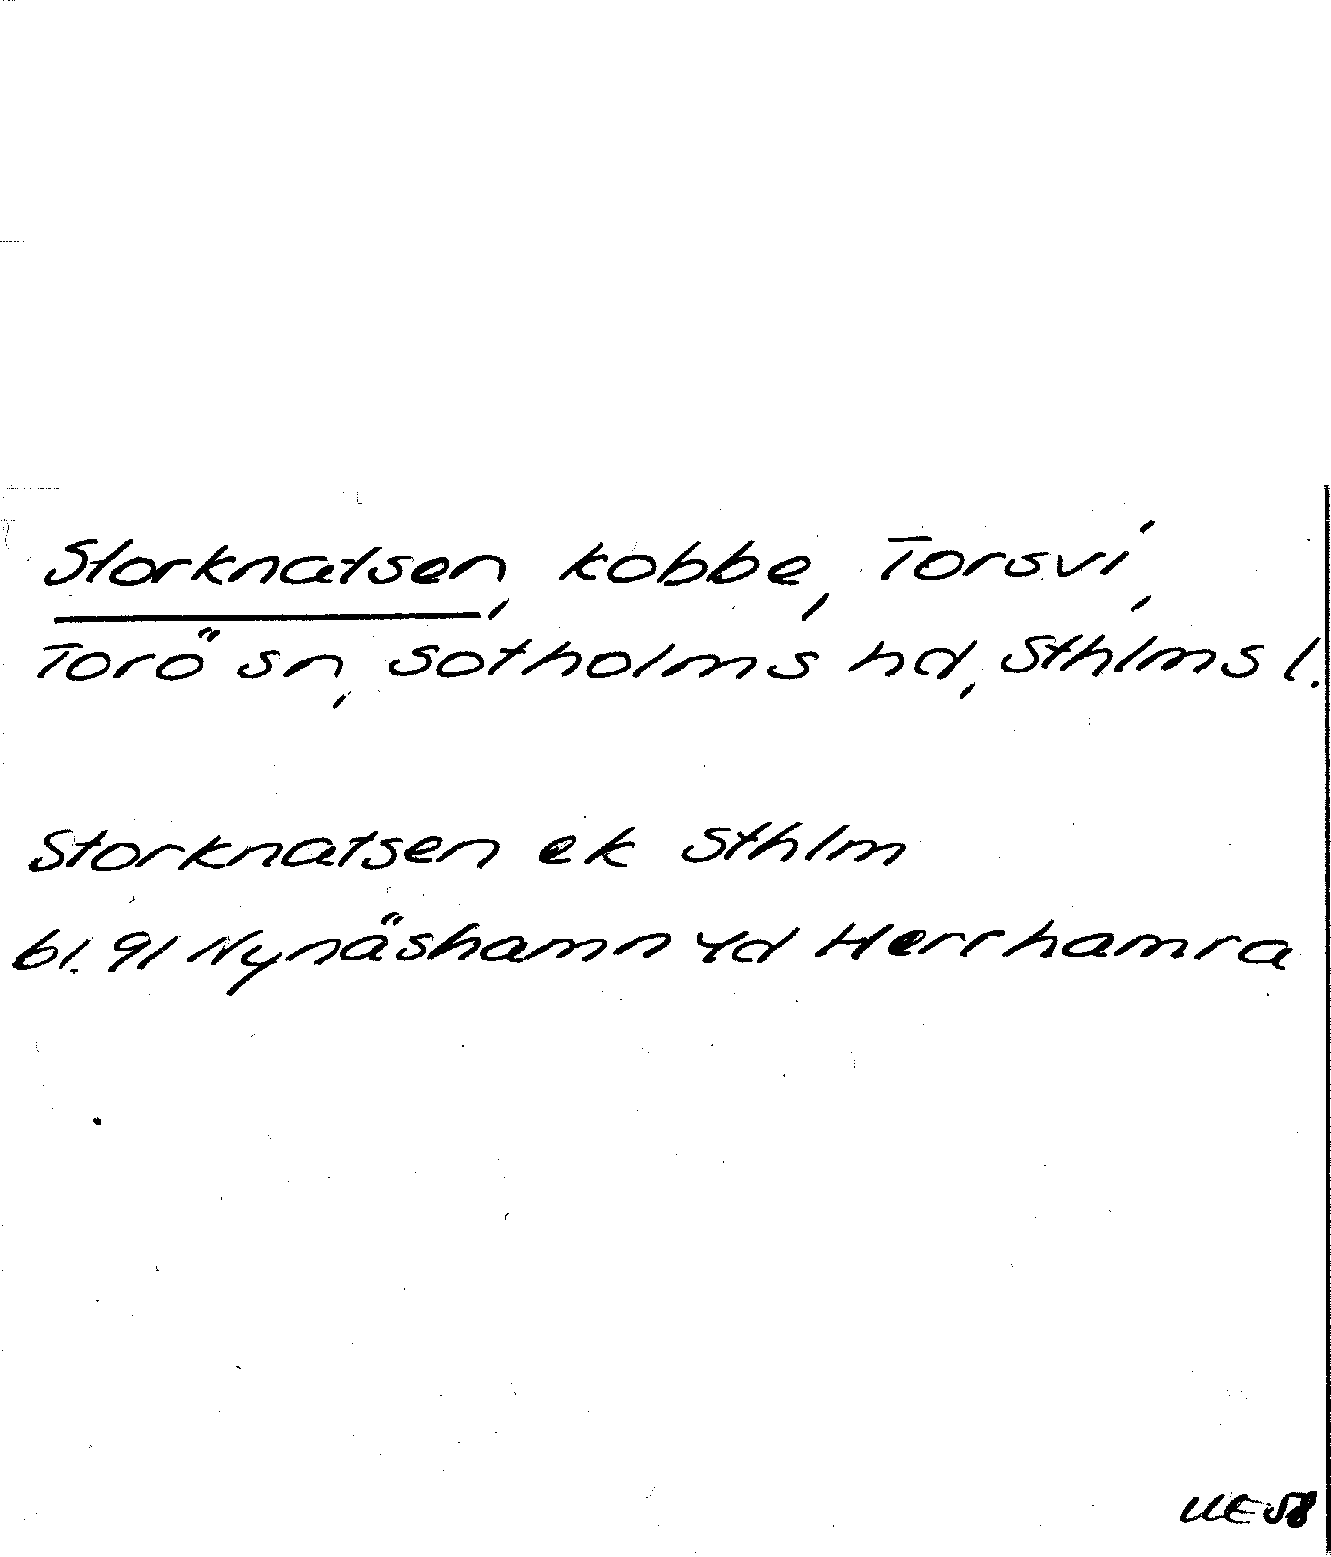 Storknatsen, kobbe, Torsvi,
Torö sn, Sotholms hd, Sthlms l.
Storknatsen ek Sthlm
bl. 91 Nynäshamn yd Herrhamra
UE 58